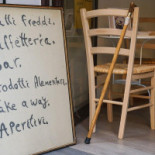 atti Freddi.
affetteria.
bar.
rodotti Alimentari
ake a way.
Aperitivi